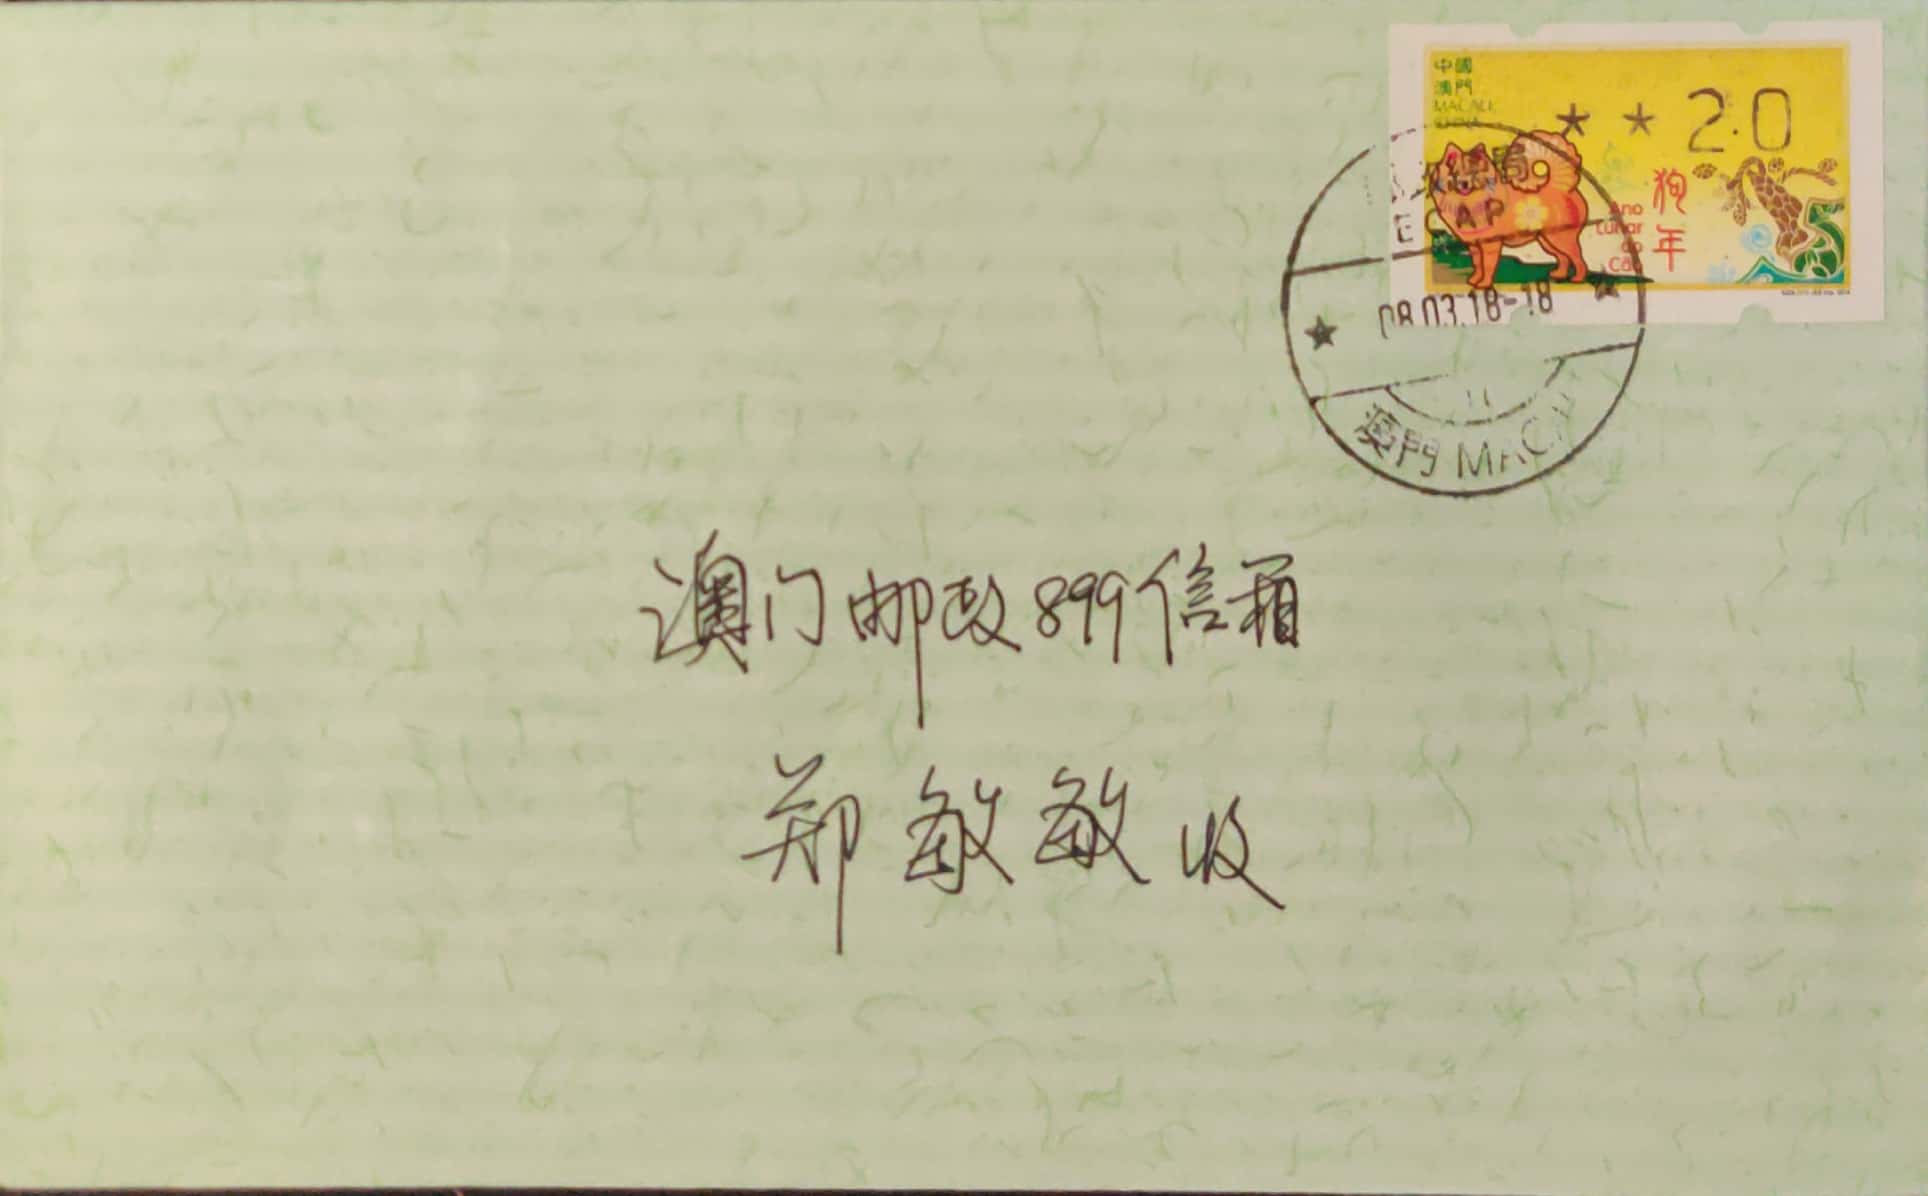 中國
澳門
MACAU
CHINA
★ ★ 2.0
狗年
Ano
Lunar
do
Cão
總局
08.03.18-18
★ ★
澳門 MACAU
澳门邮政899信箱
郑敏敏收